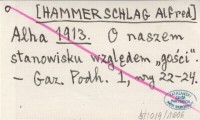 [HAMMERSCHLAG Alfred]
Alha 1913. O naszem
stanowisku względem „gości”.
– Gaz. Podh. 1, nry 22-24.